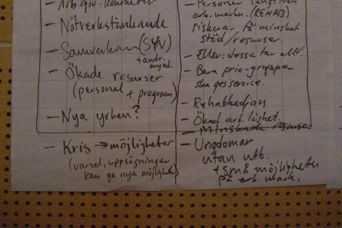 - Arb.giv.
- Nätverkstänkande
- Samverkan (SYV)
+ andra mynd.
- Ökade resurser
(personal + program)
- Nya yrken?
- Kris → möjligheter
(varsel, uppsägningar
kan ge nya möjligheter)
- Personer långt ifrån
arb. markn. (REHAB)
riskerar få minskat
stöd/resurser
- Eller: dessa tar allt.
- Bara prio. grupper
ska ges service.
- Rehabkedjan
- Ökad arb.löshet.
- Minskade resurser
- Ungdomar
utan utb.
+ små möjligheter
på arb. mark.